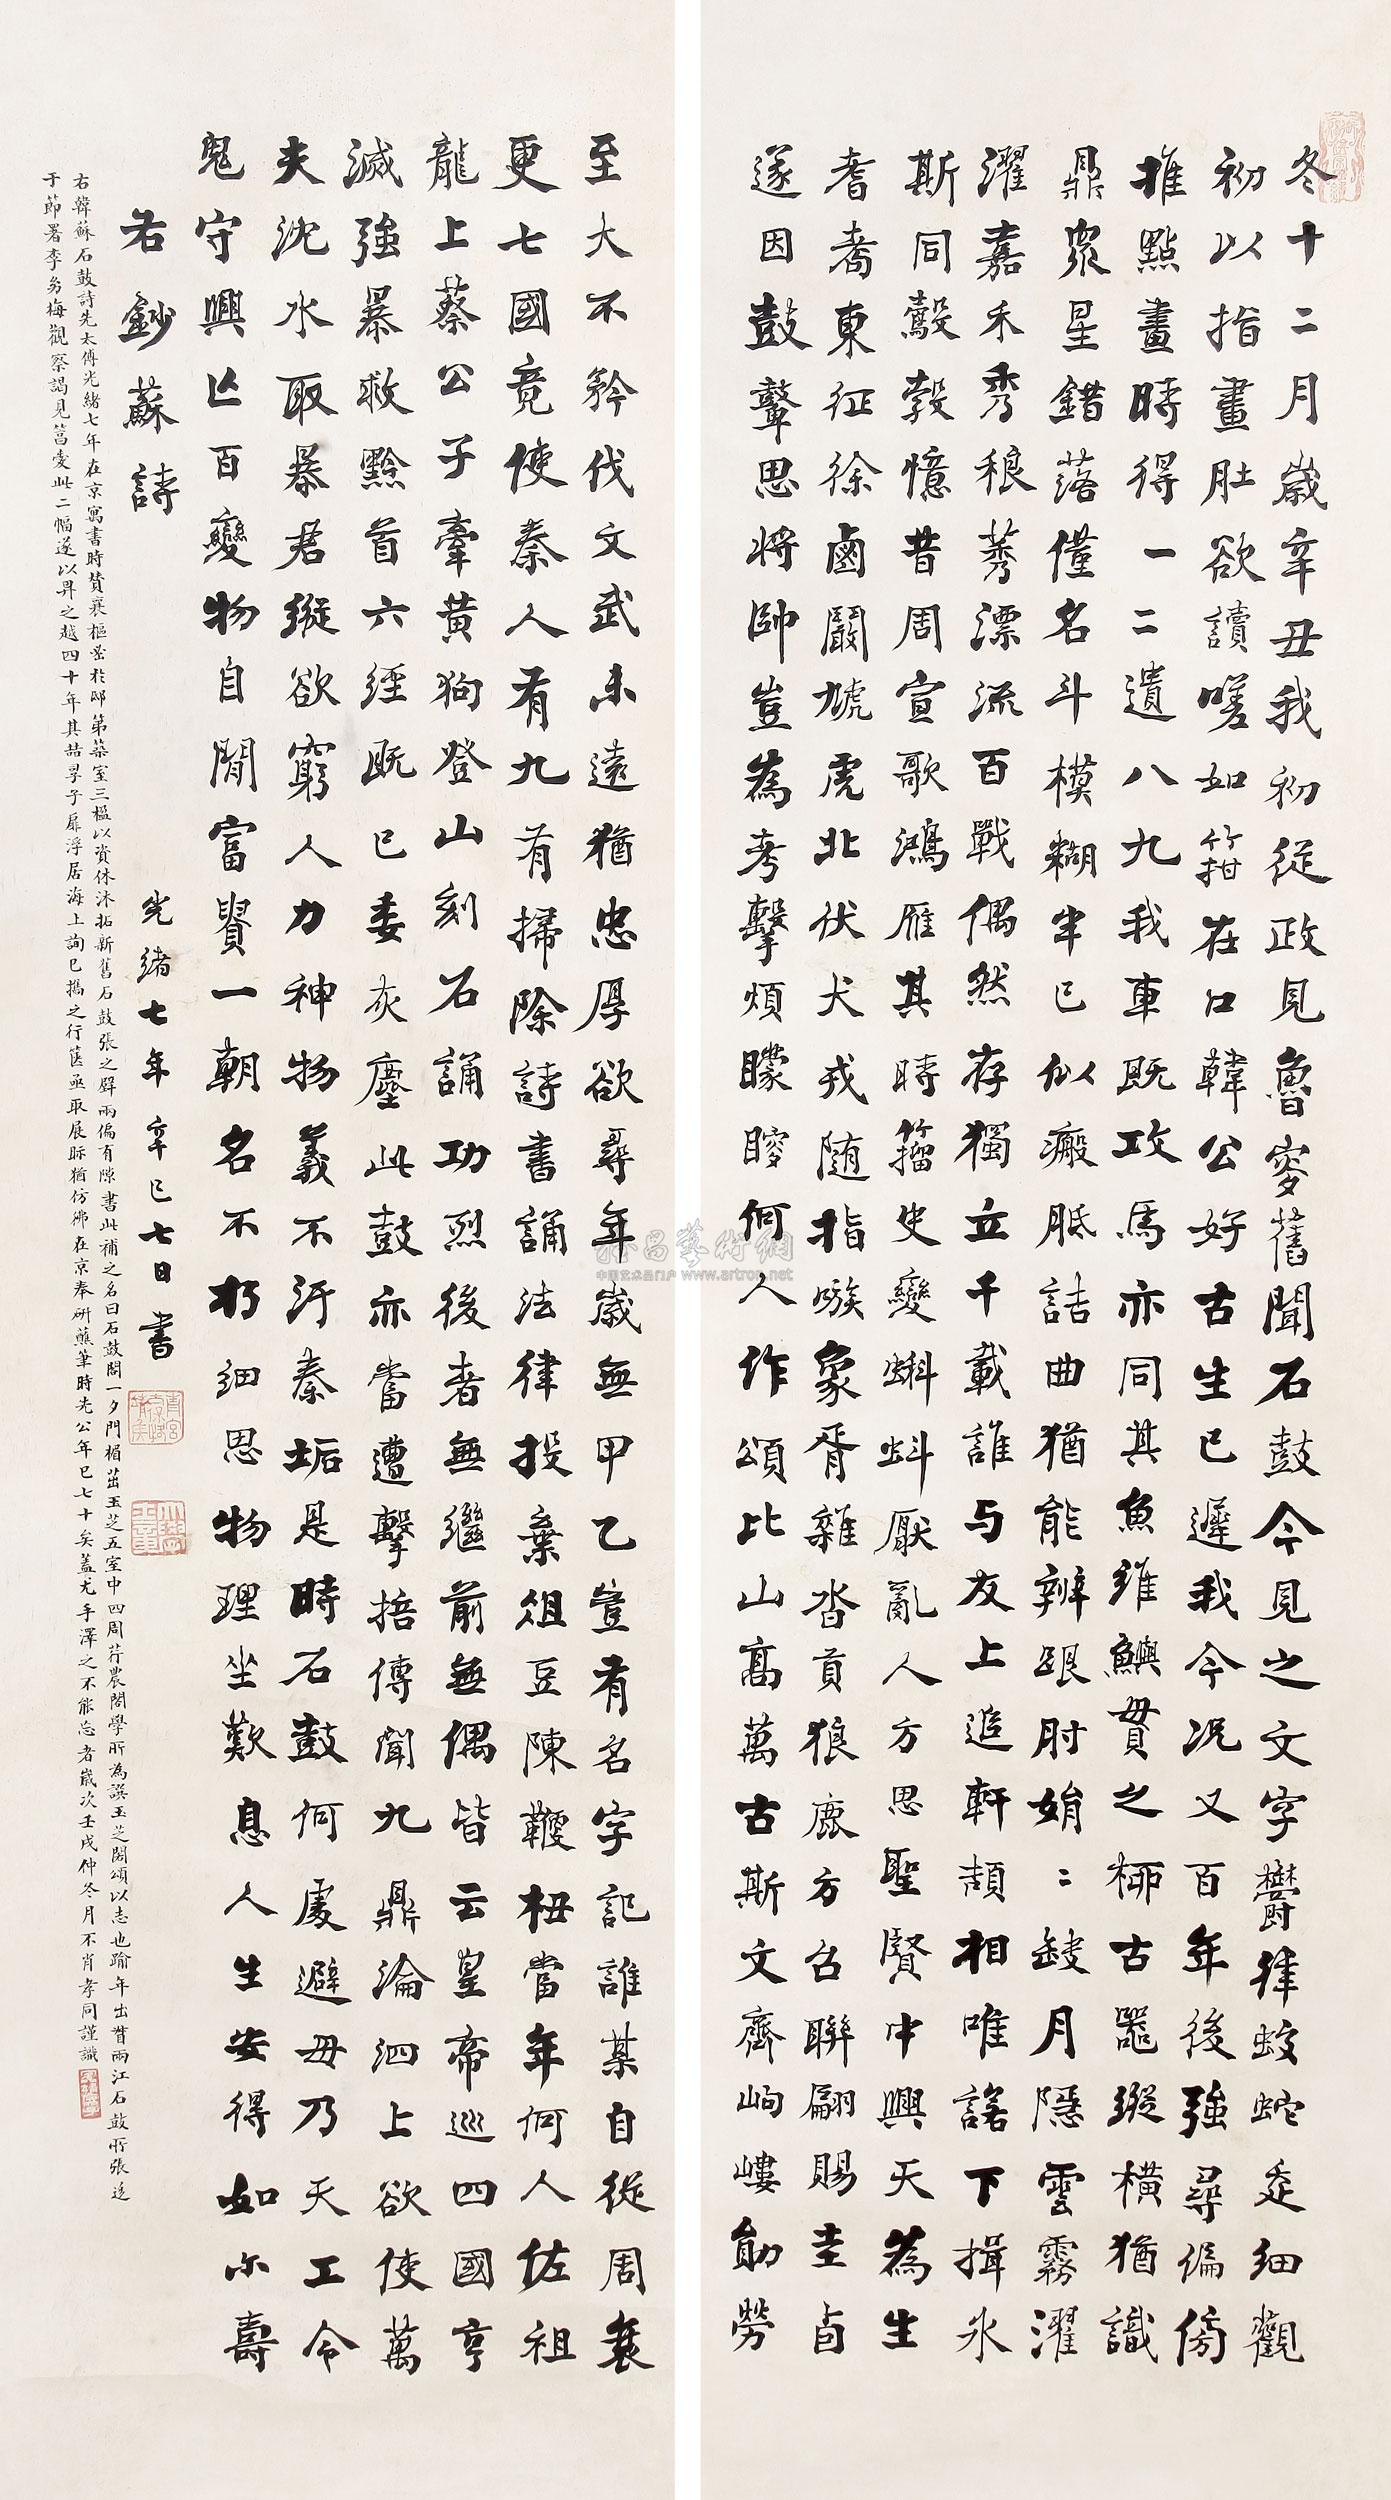 冬十二月歲辛丑我初從政見魯叟舊聞石鼓今見之文字鬱律蛟蛇走細觀
初以指畫肚欲讀嗟如箝在口韓公好古生已遲我今況又百年後強尋偏傍
推點畫時得一二遺八九我車既攻馬亦同其魚維鱮貫之柳古器縱橫猶識
鼎衆星錯落僅名斗模糊半已似瘢胝詰曲猶能辨跟肘娟二缺月隱雲霧濯
濯嘉禾秀稂莠漂流百戰偶然存獨立千載誰与友上追軒頡相唯諾下揖冰
斯同鷇㝅憶昔周宣歌鴻雁其時籀史變蝌蚪厭亂人方思聖賢中興天為生
耆耇東征徐鹵闞虓虎北伏犬戎随指嗾象胥雜沓貢狼鹿方召聯翩賜圭卣
遂因鼓鼙思將帥豈為考擊煩矇瞍何人作頌比山高萬古斯文齊岣嶁勛勞
至大不矜伐文武未遠猶忠厚欲尋年歲無甲乙豈有名字記誰某自從周衰
更七國竟使秦人有九有掃除詩書誦法律投棄俎豆陳鞭杻當年何人佐祖
龍上蔡公子牽黃狗登山刻石誦功烈後者無繼前無偶皆云皇帝巡四國亨
滅強暴救黔首六經既已委灰塵此鼓亦當遭擊掊傳聞九鼎淪泗上欲使萬
夫沈水取暴君縱欲窮人力神物義不汙秦垢是時石鼓何處避毋乃天工令
鬼守興亡百變物自閒富貴一朝名不朽細思物理坐歎息人生安得如尒壽
右鈔蘇詩
光緒七年辛巳七月書
右韓蘇石鼓詩先太傅光緒七年在京寓書時贊襄樞垣於邸第築室三楹以資休沐拓新舊石鼓張之壁兩偏有隙書此補之名曰石鼓閣一夕門楣茁玉芝五室中四周芹農閣學所為譔玉芝閣頌以志也踰年出督兩江石鼓所張遂
于節署李芻梅觀察謁見篤愛此二幅遂以畀之越四十年其喆子扉浮居海上詢已攜之行篋亟取展眎猶仿彿在京奉研蘸筆時先公年已七十矣蓋尤手澤之不能忘者歲次壬戌仲冬月不肖孝同謹識
雅昌藝術網
中国艺术品门户 www.artron.net